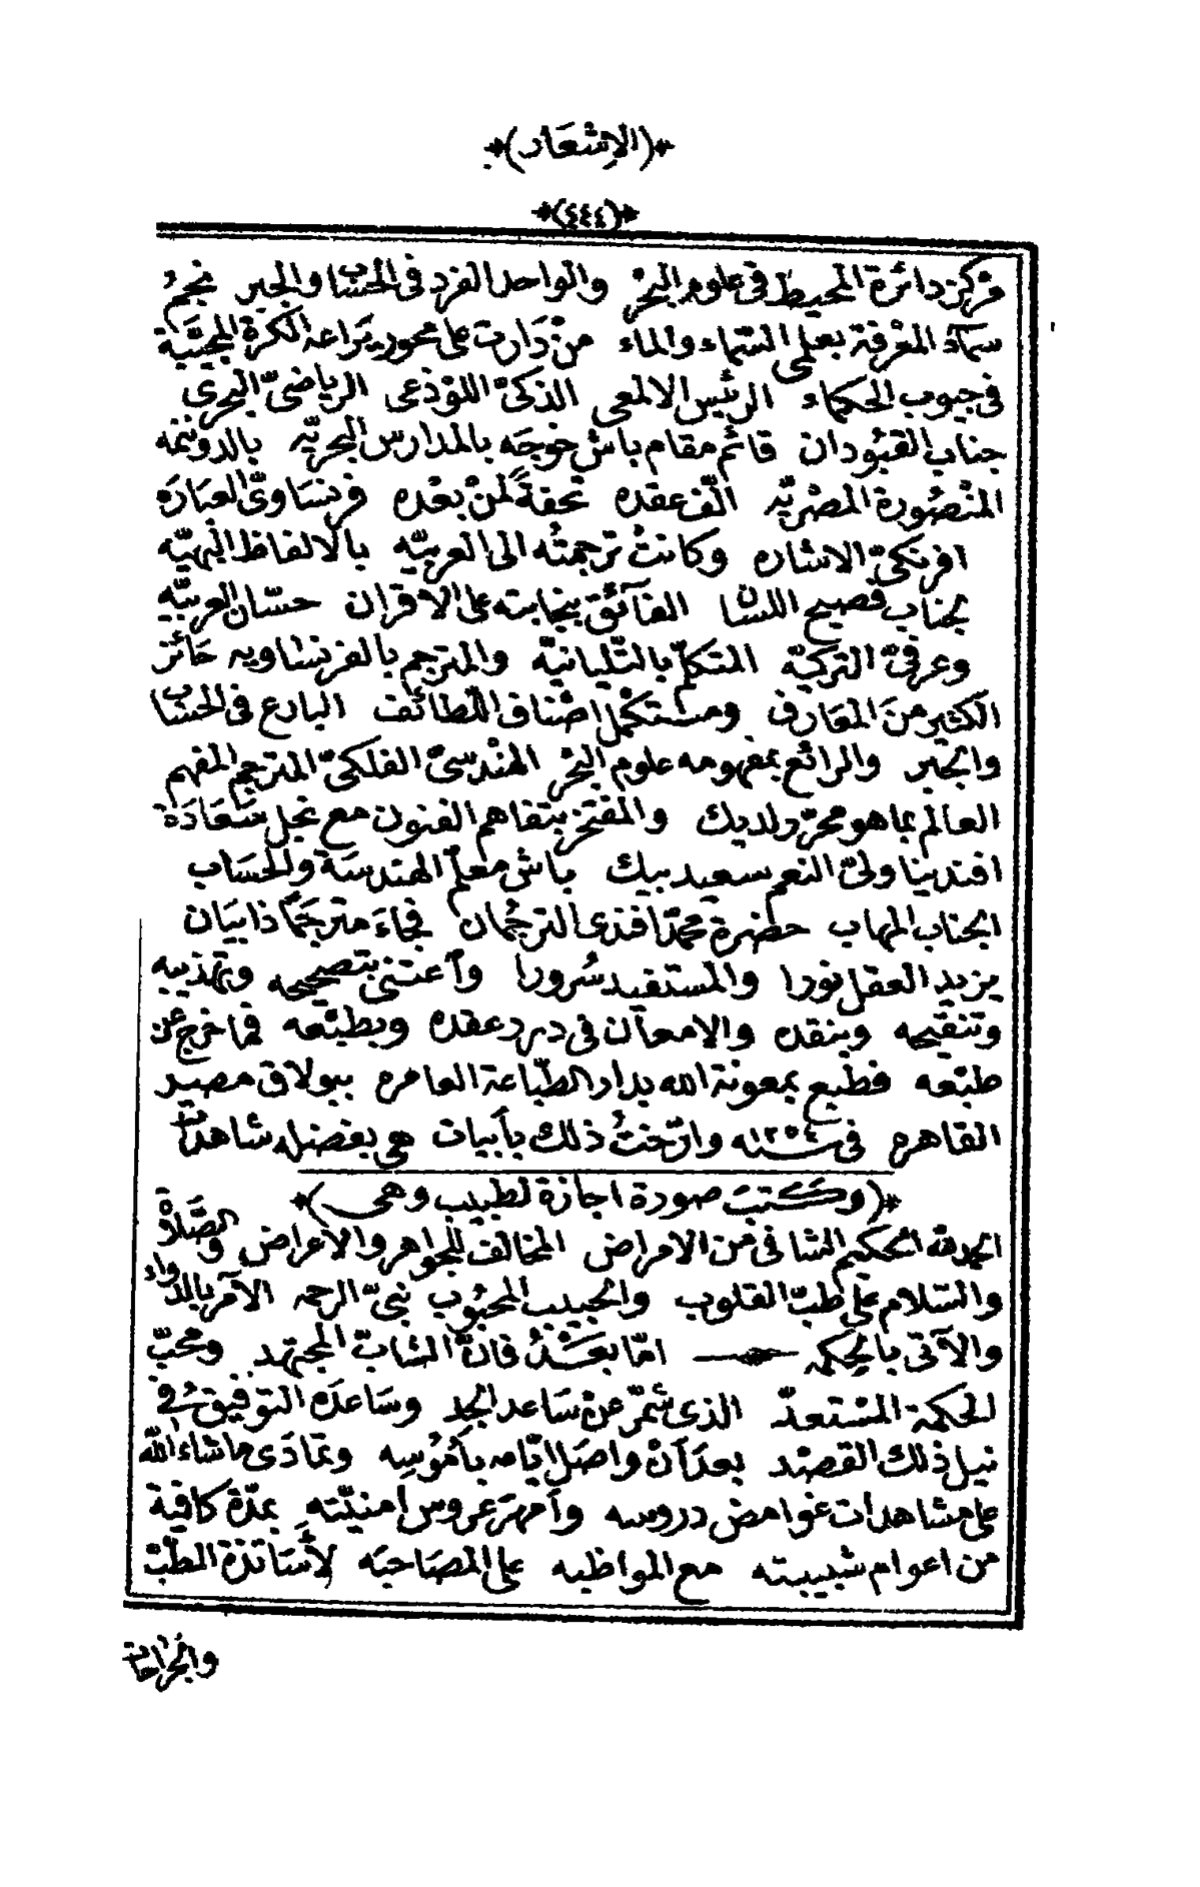 ﴿(الاشعار)﴾
﴿(٤٤٤)﴾
مركز دائرة المحيط فى علوم البحر والواحد الفرد فى الحساب والجبر نجم
سماء المعرفة بعلمى السماء والماء من دارت على محور يراعه الكرة المجيبّة
فى جيوب الحكماء الرئيس الالمعى الذكىّ اللوذعى الرياضىّ البحرى
جناب القبودان قائم مقام باش خوجه بالمدارس البحريّه بالدوننمه
المنصورة المصريّه الّف عقده تحفةً لمن بعْده فرنساوىّ العباره
افرنكىّ الاشاره وكانتْ ترجمتُه الى العربيّه بالالفاظ البهيّه
بجناب فصيح اللسان الفائق بنجابته على الاقران حسّان العربيّه
وعرفىّ التركيّه المتكلّم بالتّليانيّه والمترجم بالفرنساويه حائز
الكثير من المعارف ومستكمل اصناف اللطائف البارع فى الحساب
والجبر والرائع بمفهومه علوم البحْر الهنْدسىّ الفلكىّ المترجم المفهم
العالم بما هو محرّر لديك والمفتخر بتفاهم الفنون مع نجل سعادة
افندينا ولىّ النعم سعيد بيك باش معلم الهندسة والحساب
الجناب المهاب حضرة محمّد افندى الترجمان فجاء مترجمًا ذا بيان
يزيد العقل نورا والمستفيد سُرورا وأعتنى بتصحيحه وتهذيبه
وتنقيحه وبنقده والامعان فى درر عقده وبطبْعه فما خرج عن
طبْعه فطبع بمعونة الله بدار الطّباعة العامره ببولاق مصر
القاهره فى سنة ١٢٥٤ وارّختُ ذلك بأبيات هى بفضله شاهدات
﴿(وكتبتَ صورة اجازة لطبيب وهى)﴾
الحمد لله الحكيم الشافى من الامراض المخالف للجواهر والاعراض والصّلاة
والسّلام على طبّ القلوب والحبيب المحبُوب نبىّ الرحمه الآمر بالدّواء
والآتى بالحكمه امّا بعْدُ فانّ الشابّ المجتهد ومحبّ
الحكمة المسْتعدّ الذى شمّر عنْ ساعد الجد وساعده التوفيقُ فى
نيل ذلك القصْد بعد أنْ واصل ايّامه بأمُوسِه وتمادَى ما شاء اللّه
على مشاهدات غوامض دروسه وأمهرَ عروس أمنيّته بمدّة كافية
من اعوام شبيبته مع المواظبه على المصَاحبَه لأسَاتذة الطّبْ
والجراحات